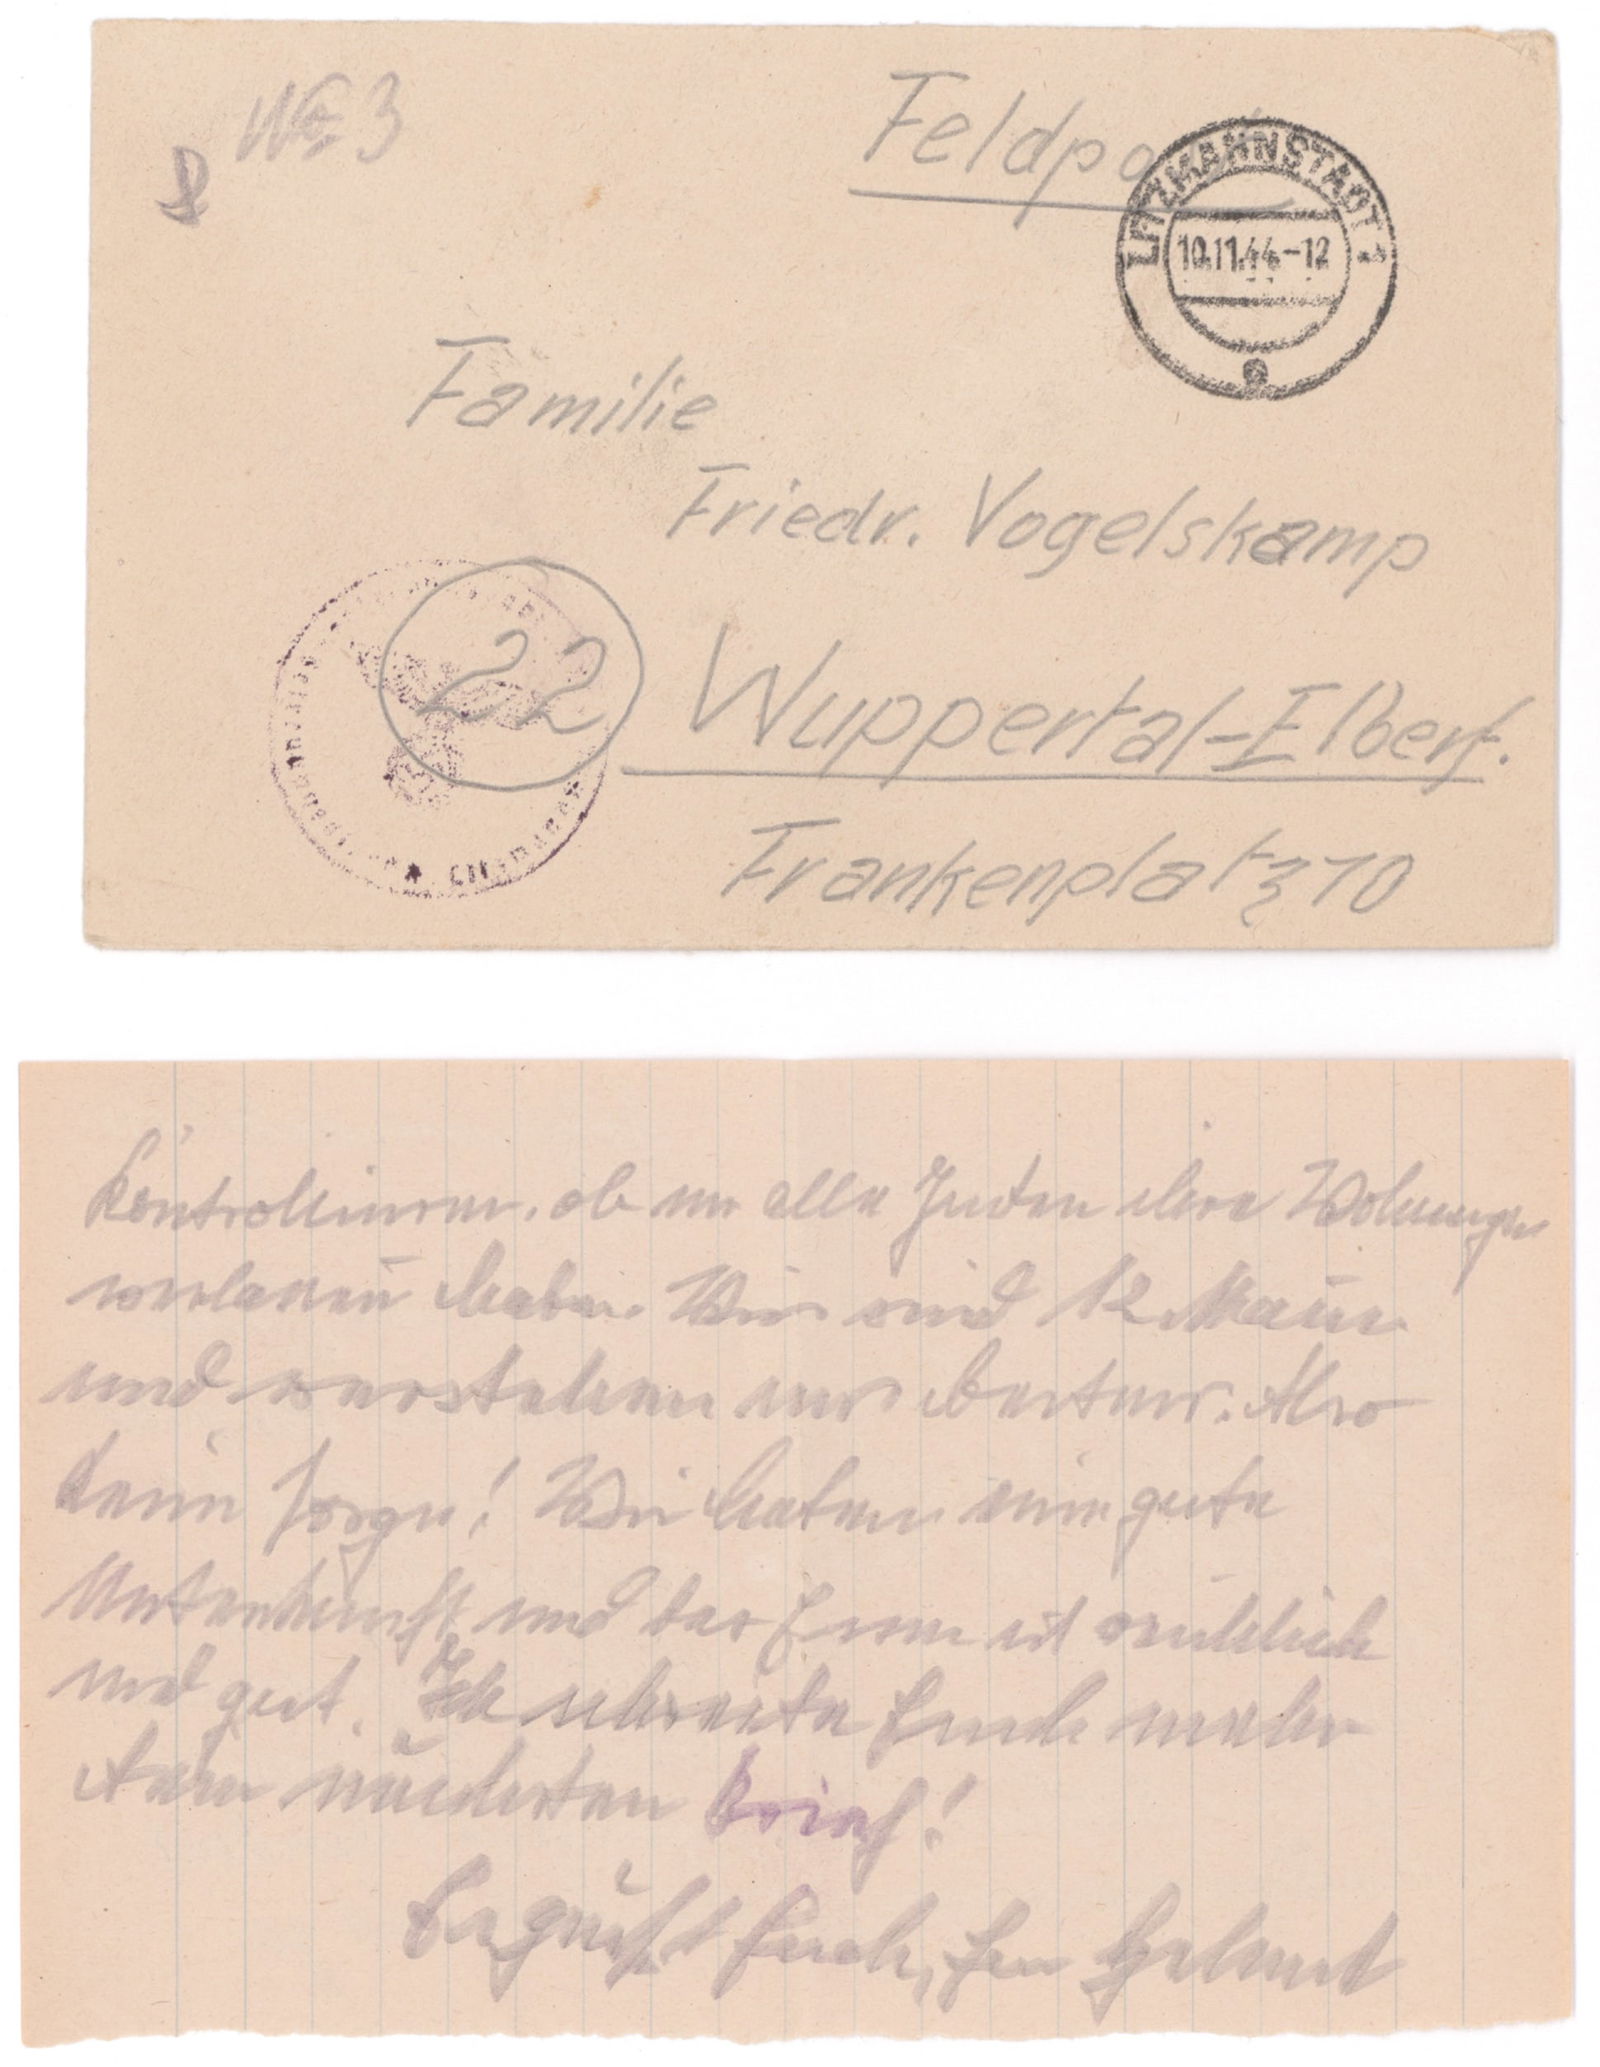 WE 3
Feldpo
LITZMANNSTADT 1
10.11.44-12
e
Familie
Friedr. Vogelskamp
22 Wuppertal-Elberf.
Frankenplatz 10
Kontrollieren, ob nur alle Juden ihre Wohnungen
verlassen haben. Wir sind 12 Mann
und verstehen uns bestens. Also
keine Sorge! Wir haben eine gute
Unterkunft und das Essen ist reichlich
und gut. Ich schreibe Euch mehr
dem nächsten Brief!
Es grüßt Euch, Eu Helmut